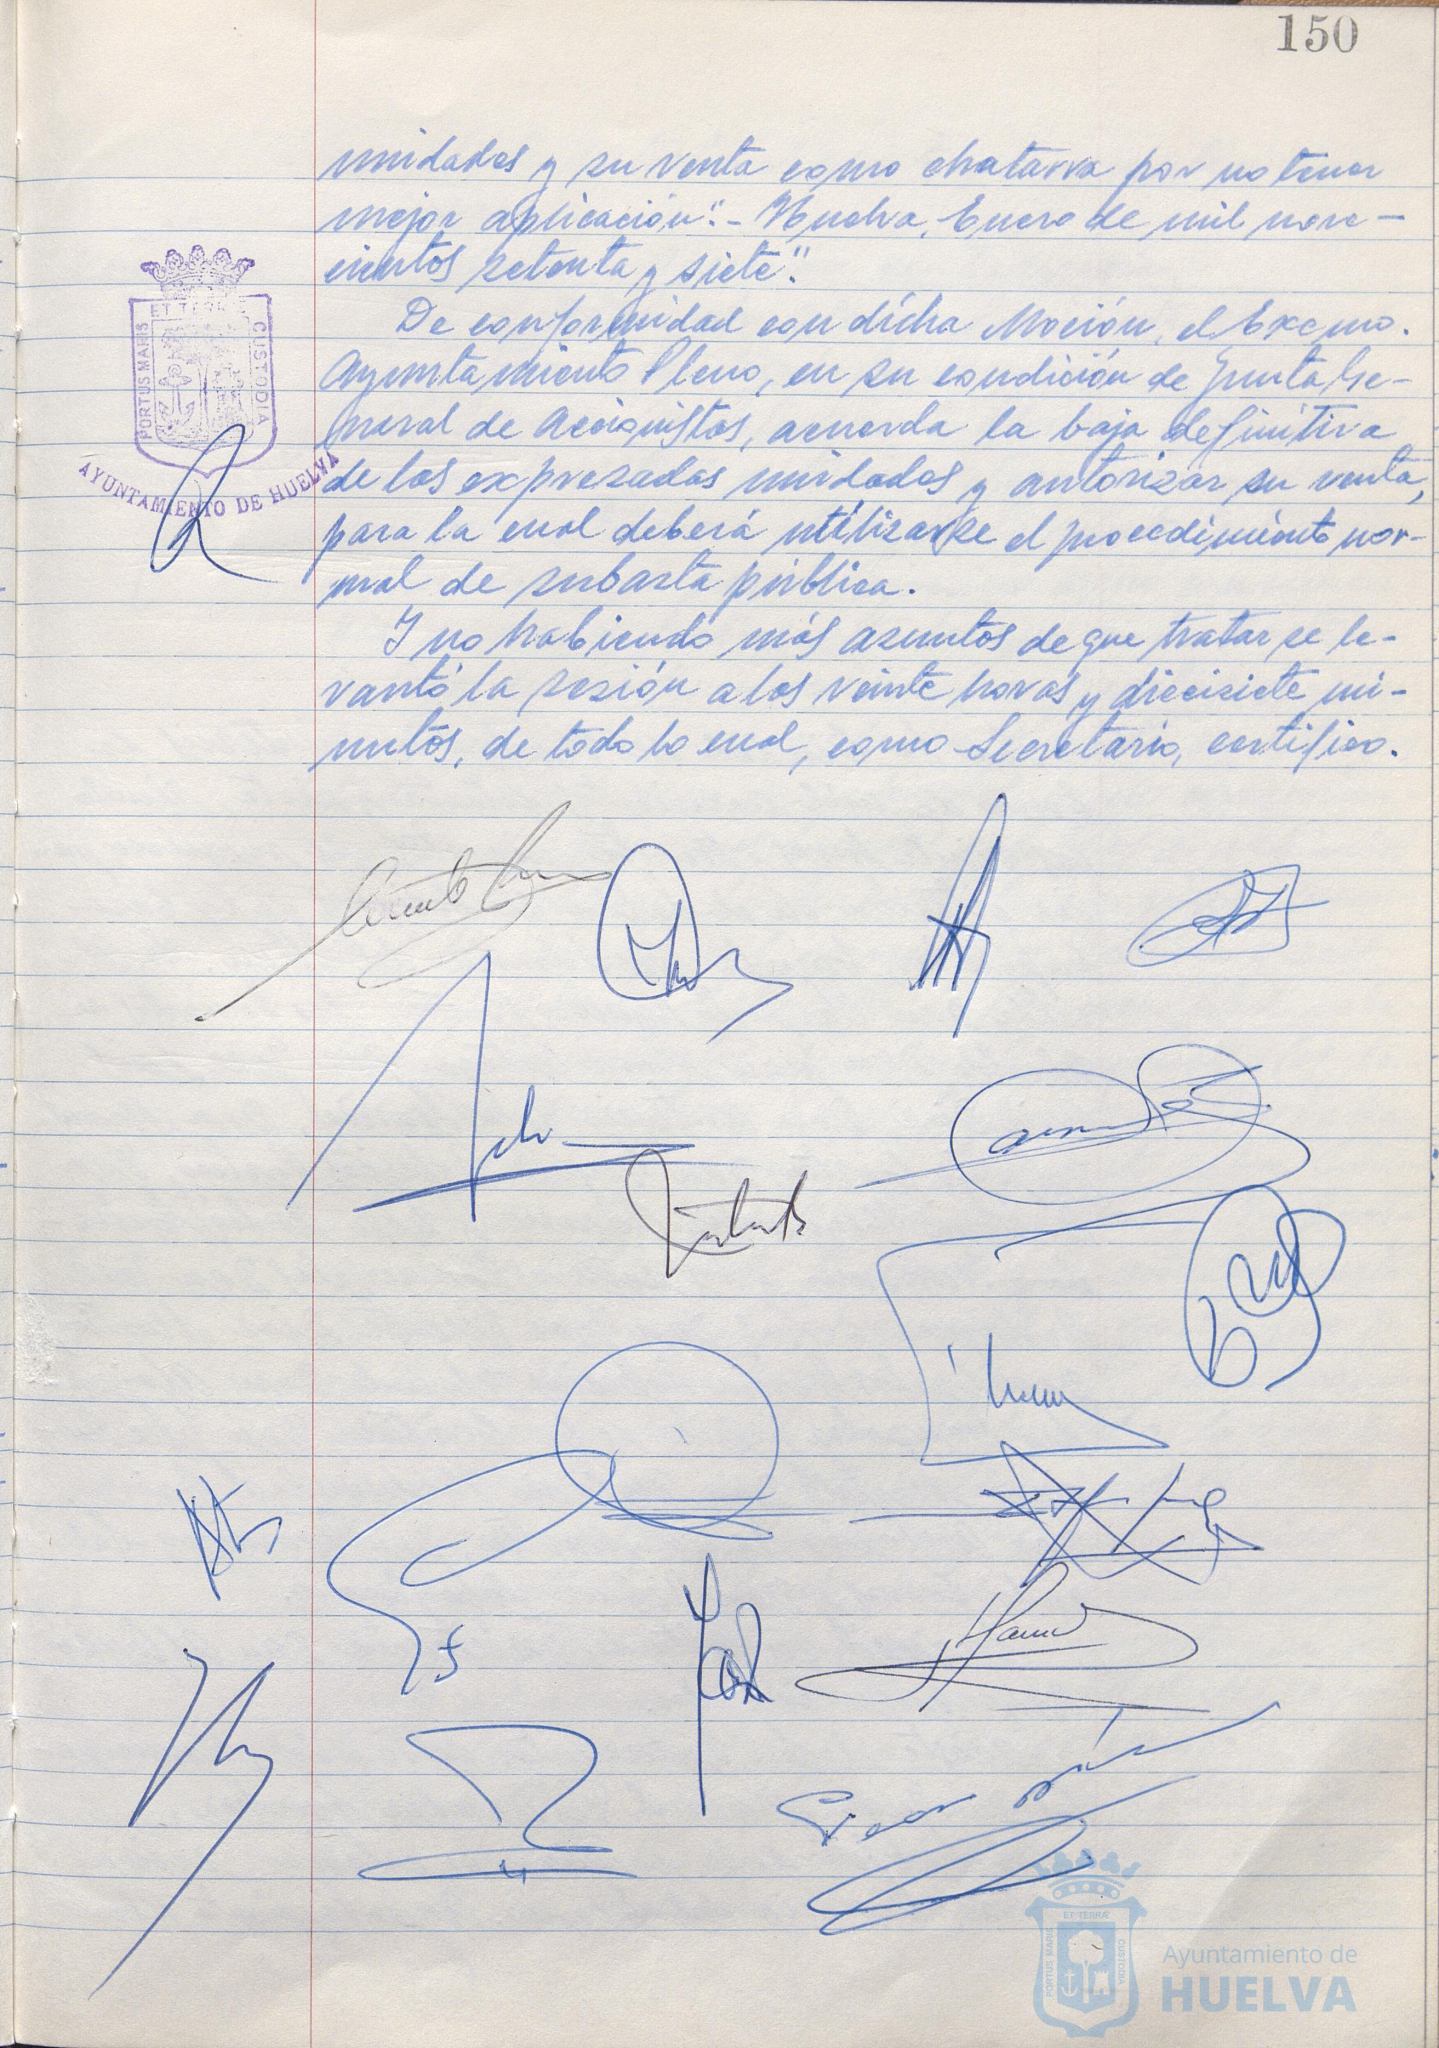 150
unidades y su venta como chatarra por no tener
mejor aplicación".- Huelva, Enero de mil nove-
cientos setenta y siete".
De conformidad con dicha Moción, el Excmo.
Ayuntamiento Pleno, en su condición de Junta Ge-
neral de Accionistas, acuerda la baja definitiva
de las expresadas unidades y autorizar su venta,
para la cual deberá utilizarse el procedimiento nor-
mal de subasta pública.
Y no habiendo más asuntos de que tratar se le-
vantó la sesión a las veinte horas y diecisiete mi-
nutos, de todo lo cual, como Secretario, certifico.
PORTUS MARIS ET TERRÆ CUSTODIA
AYUNTAMIENTO DE HUELVA
PORTUS MARIS ET TERRÆ CUSTODIA
Ayuntamiento de
HUELVA